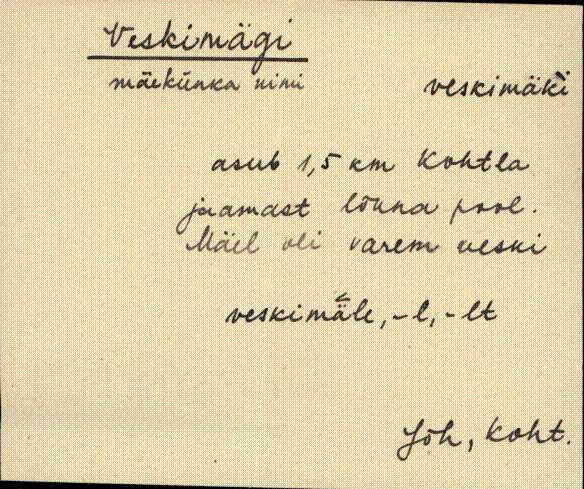 Veskimägi
mäekünka nimi veskimäki
asub 1,5 km Kohtla
jaamast lõuna pool.
Mäel oli varem veski
veskimäle, -l, -lt
Jõh, Koht.